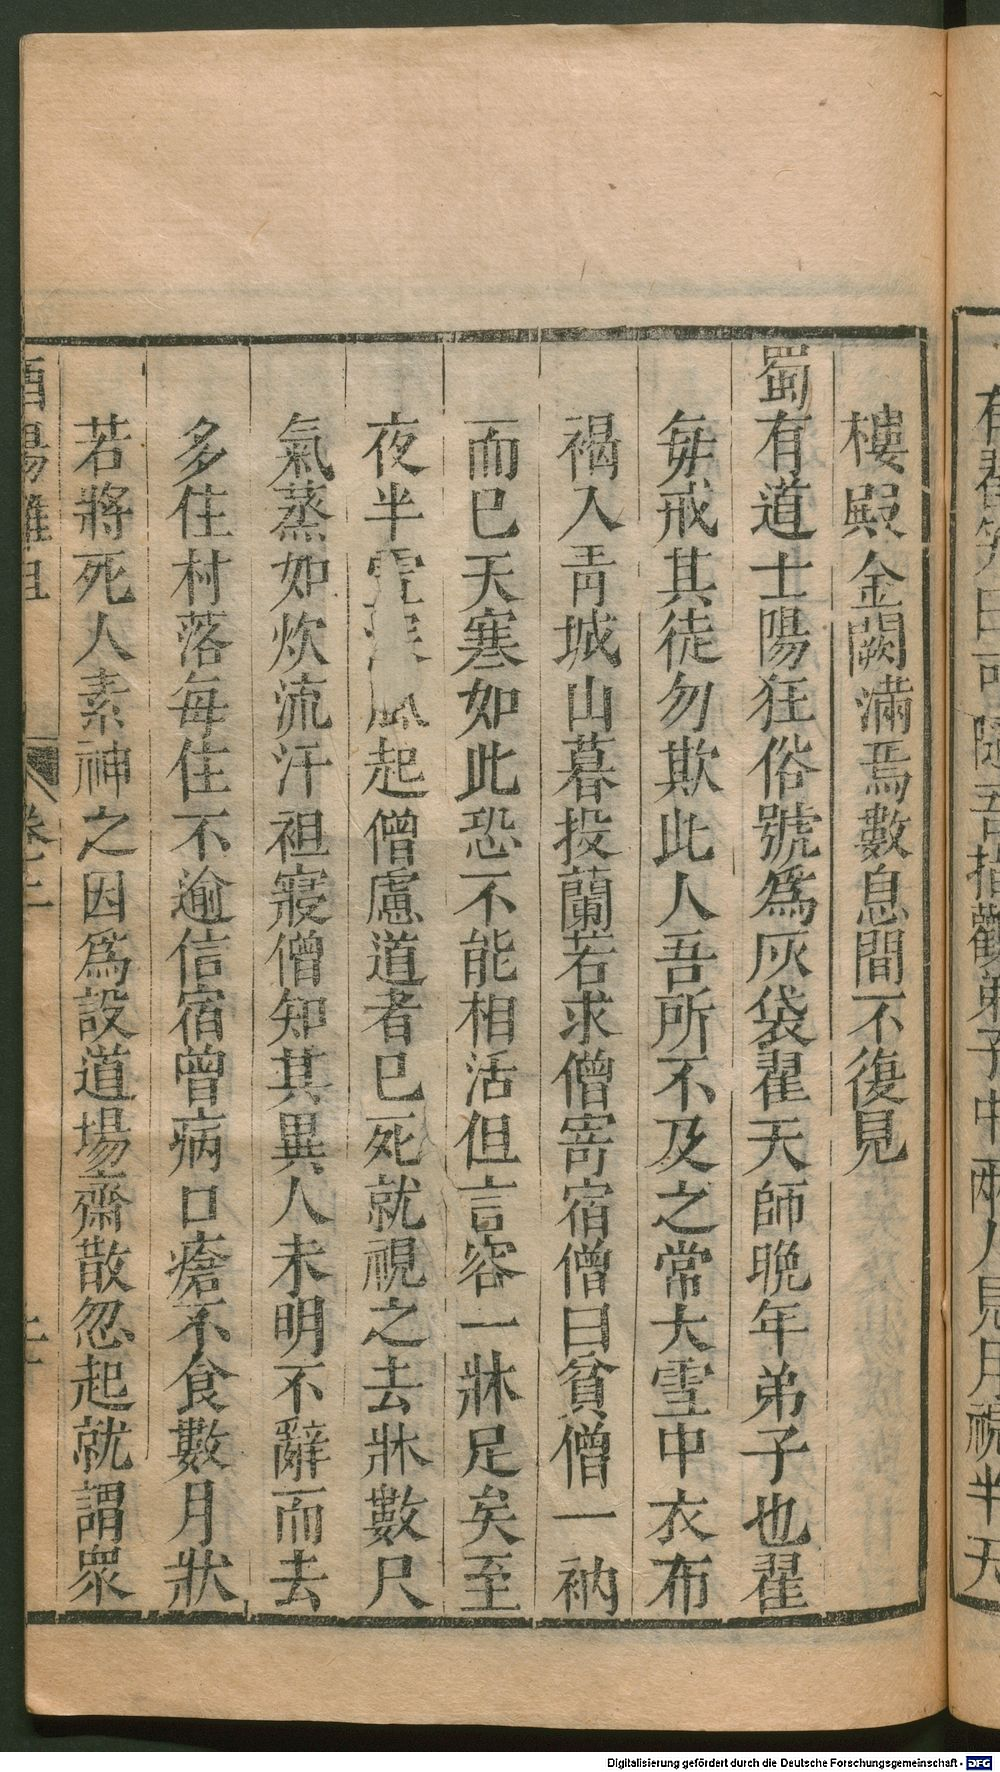 樓殿金闕滿焉數息間不復見
蜀有道士陽狂俗號為灰袋翟天師晚年弟子也翟
每戒其徒勿欺此人吾所不及之常大雪中衣布
褐入青城山暮投蘭若求僧寄宿僧曰貧僧一衲
而已天寒如此恐不能相活但言容一牀足矣至
夜半雪深風起僧慮道者已死就視之去牀數尺
氣蒸如炊流汗袒寢僧知其異人未明不辭而去
多住村落每住不逾信宿曾病口瘡不食數月狀
若將死人素神之因爲設道場齋散忽起就謂眾
酉陽雜俎 卷之二
有翟笑曰可隨吾指觀弟子中兩人見月規半天
Digitalisierung gefördert durch die Deutsche Forschungsgemeinschaft - DFG